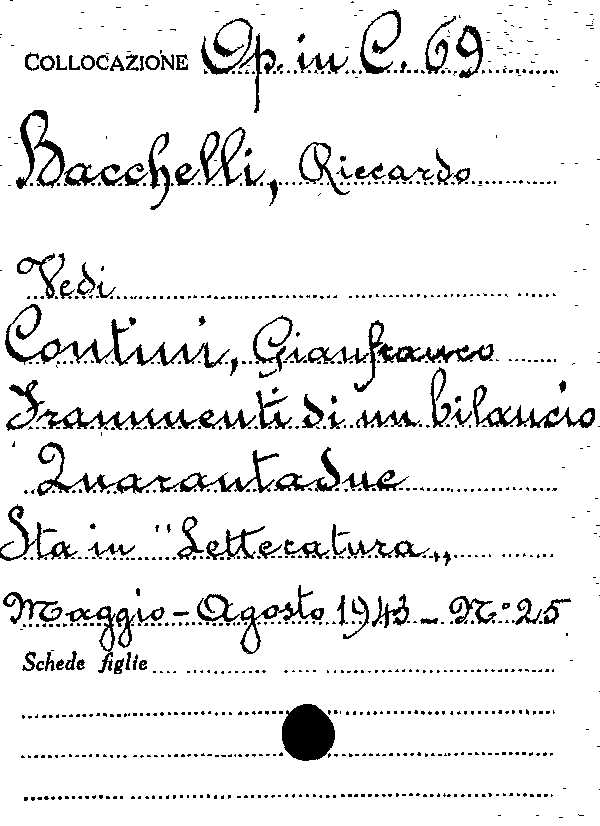 COLLOCAZIONE Op. in C. 69
Bacchelli, Riccardo
Vedi
Contini, Gianfranco
Frammenti di un bilancio
Quarantadue
Sta in "Letteratura„
Maggio - Agosto 1943 - N.° 25
Schede figlie